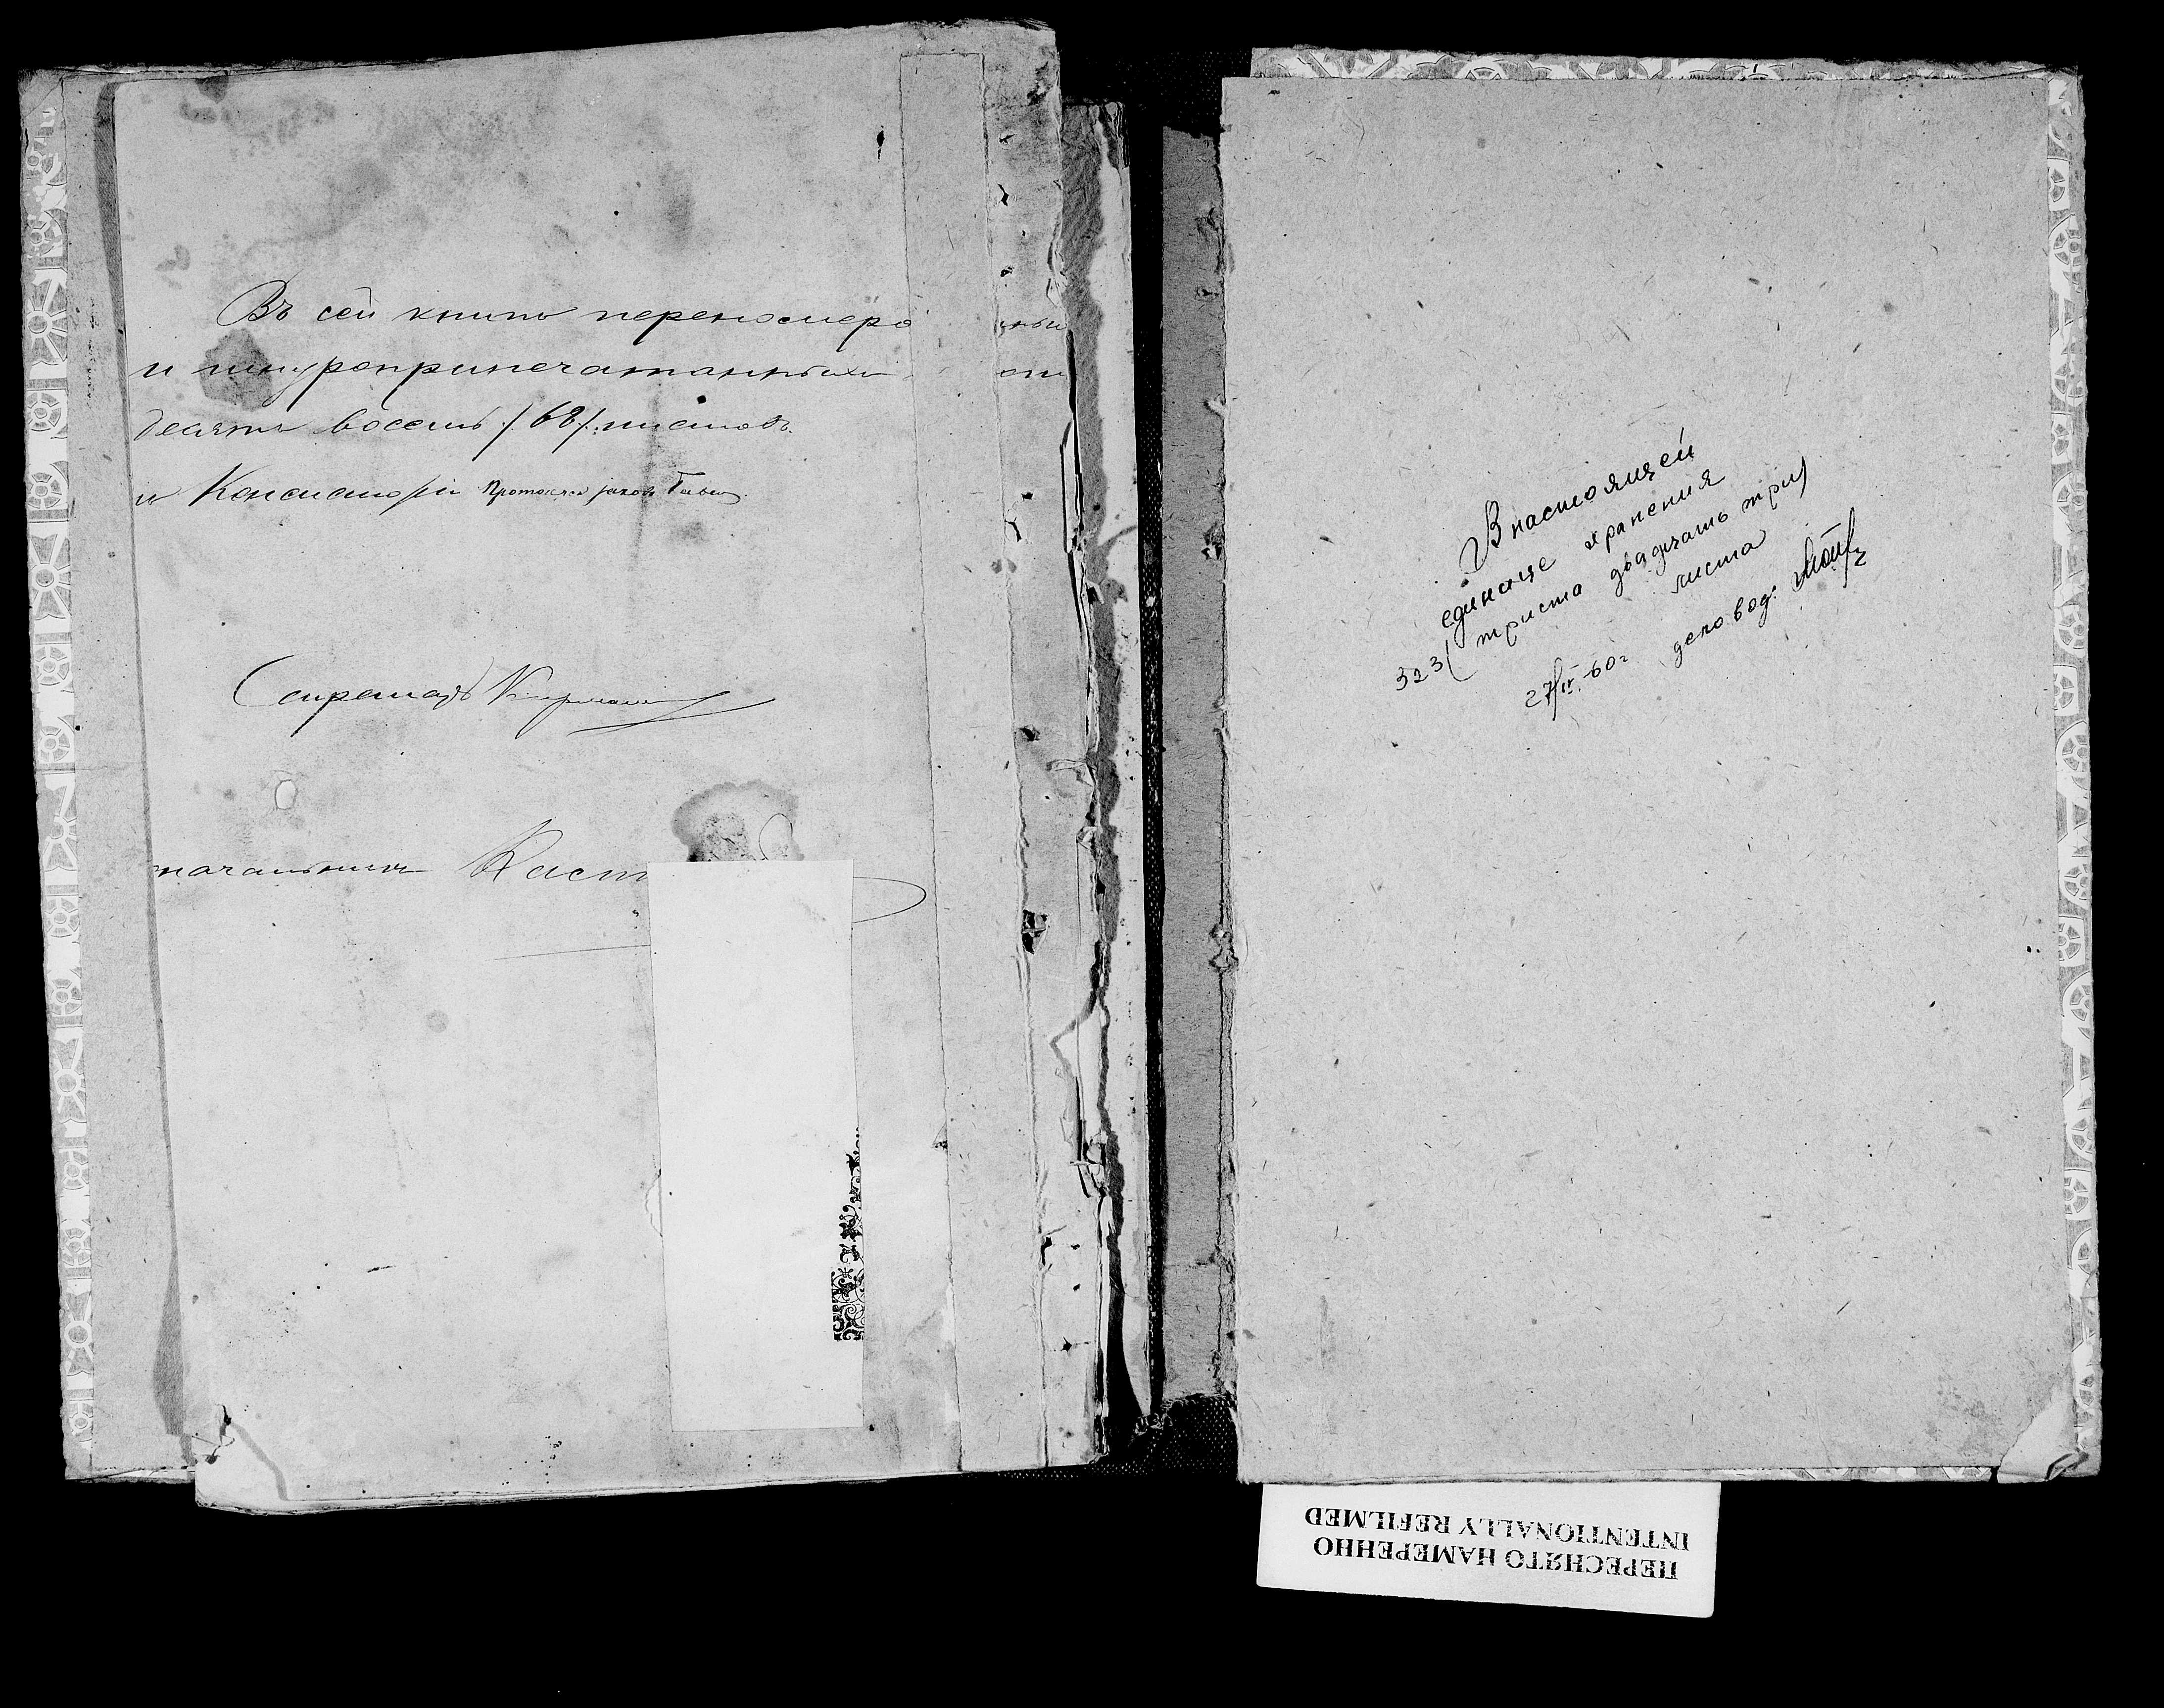 Въ сей книгѣ переномеро ныхъ
и шнуроприпечатанныхъ
десять восемь /68/ листовъ.
Консисторіи Протоіерей Іаковъ
Секретарь
начальникъ
В настоящей
единице хранения
323 (триста двадцать три)
листа
27/IV-60г деловод.
ПЕРЕСНЯТО НАМЕРЕННО
INTENTIONALLY REFILMED